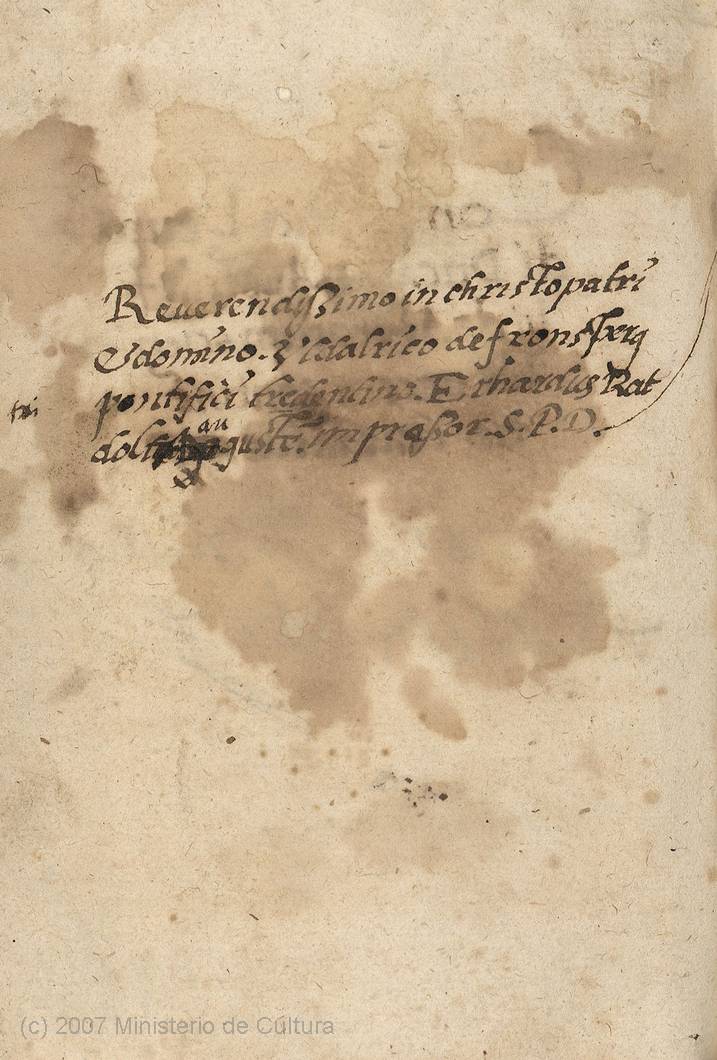 Reverendissimo in christo patri
& domino. Vdalrico de fronsperg
pontifici tredentino. Erhardus Rat
dolt au guste. impressor. S. P. D.
(c) 2007 Ministerio de Cultura